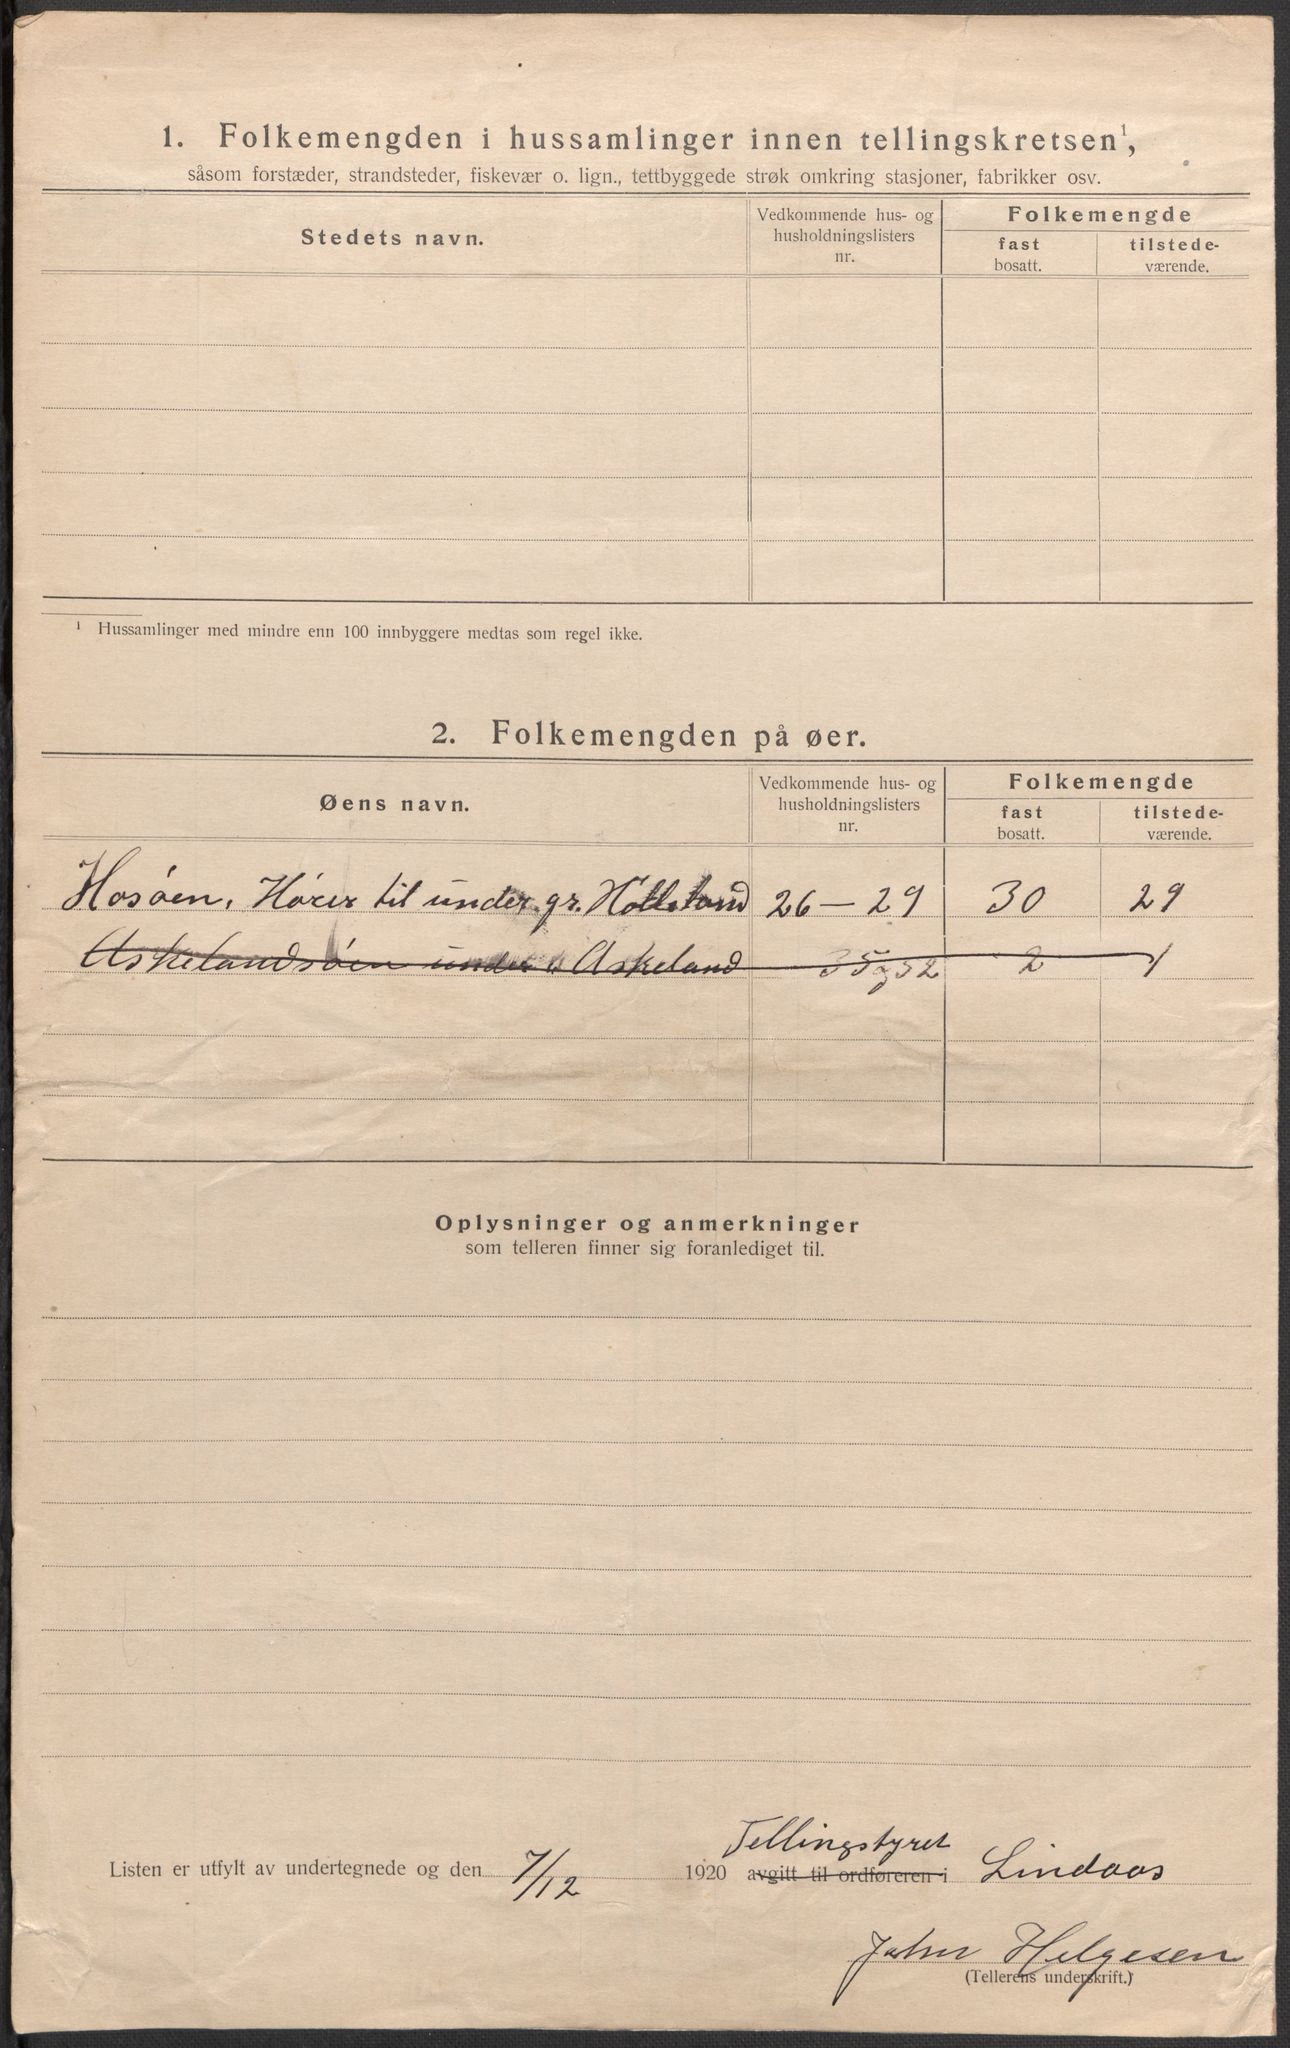 1. Folkemengden i hussamlinger innen tellingskretsen¹,
såsom forstæder, strandsteder, fiskevær o. lign., tettbyggede strøk omkring stasjoner, fabrikker osv.
Stedets navn.
Vedkommende hus- og husholdningslisters nr.
Folkemengde
fast bosatt.
tilstede-værende.
¹ Hussamlinger med mindre enn 100 innbyggere medtas som regel ikke.
2. Folkemengden på øer.
Øens navn.
Vedkommende hus- og husholdningslisters nr.
Folkemengde
fast bosatt.
tilstede-værende.
Hosøen, Hører til under gr. 26 — 29 30 29
Askelandsøen under Askeland 35 2 1
Oplysninger og anmerkninger
som telleren finner sig foranlediget til.
Tellingstyret
Listen er utfylt av undertegnede og den 7/12 1920 avgitt til ordføreren i Lindaas
John Helgesen
(Tellerens underskrift.)